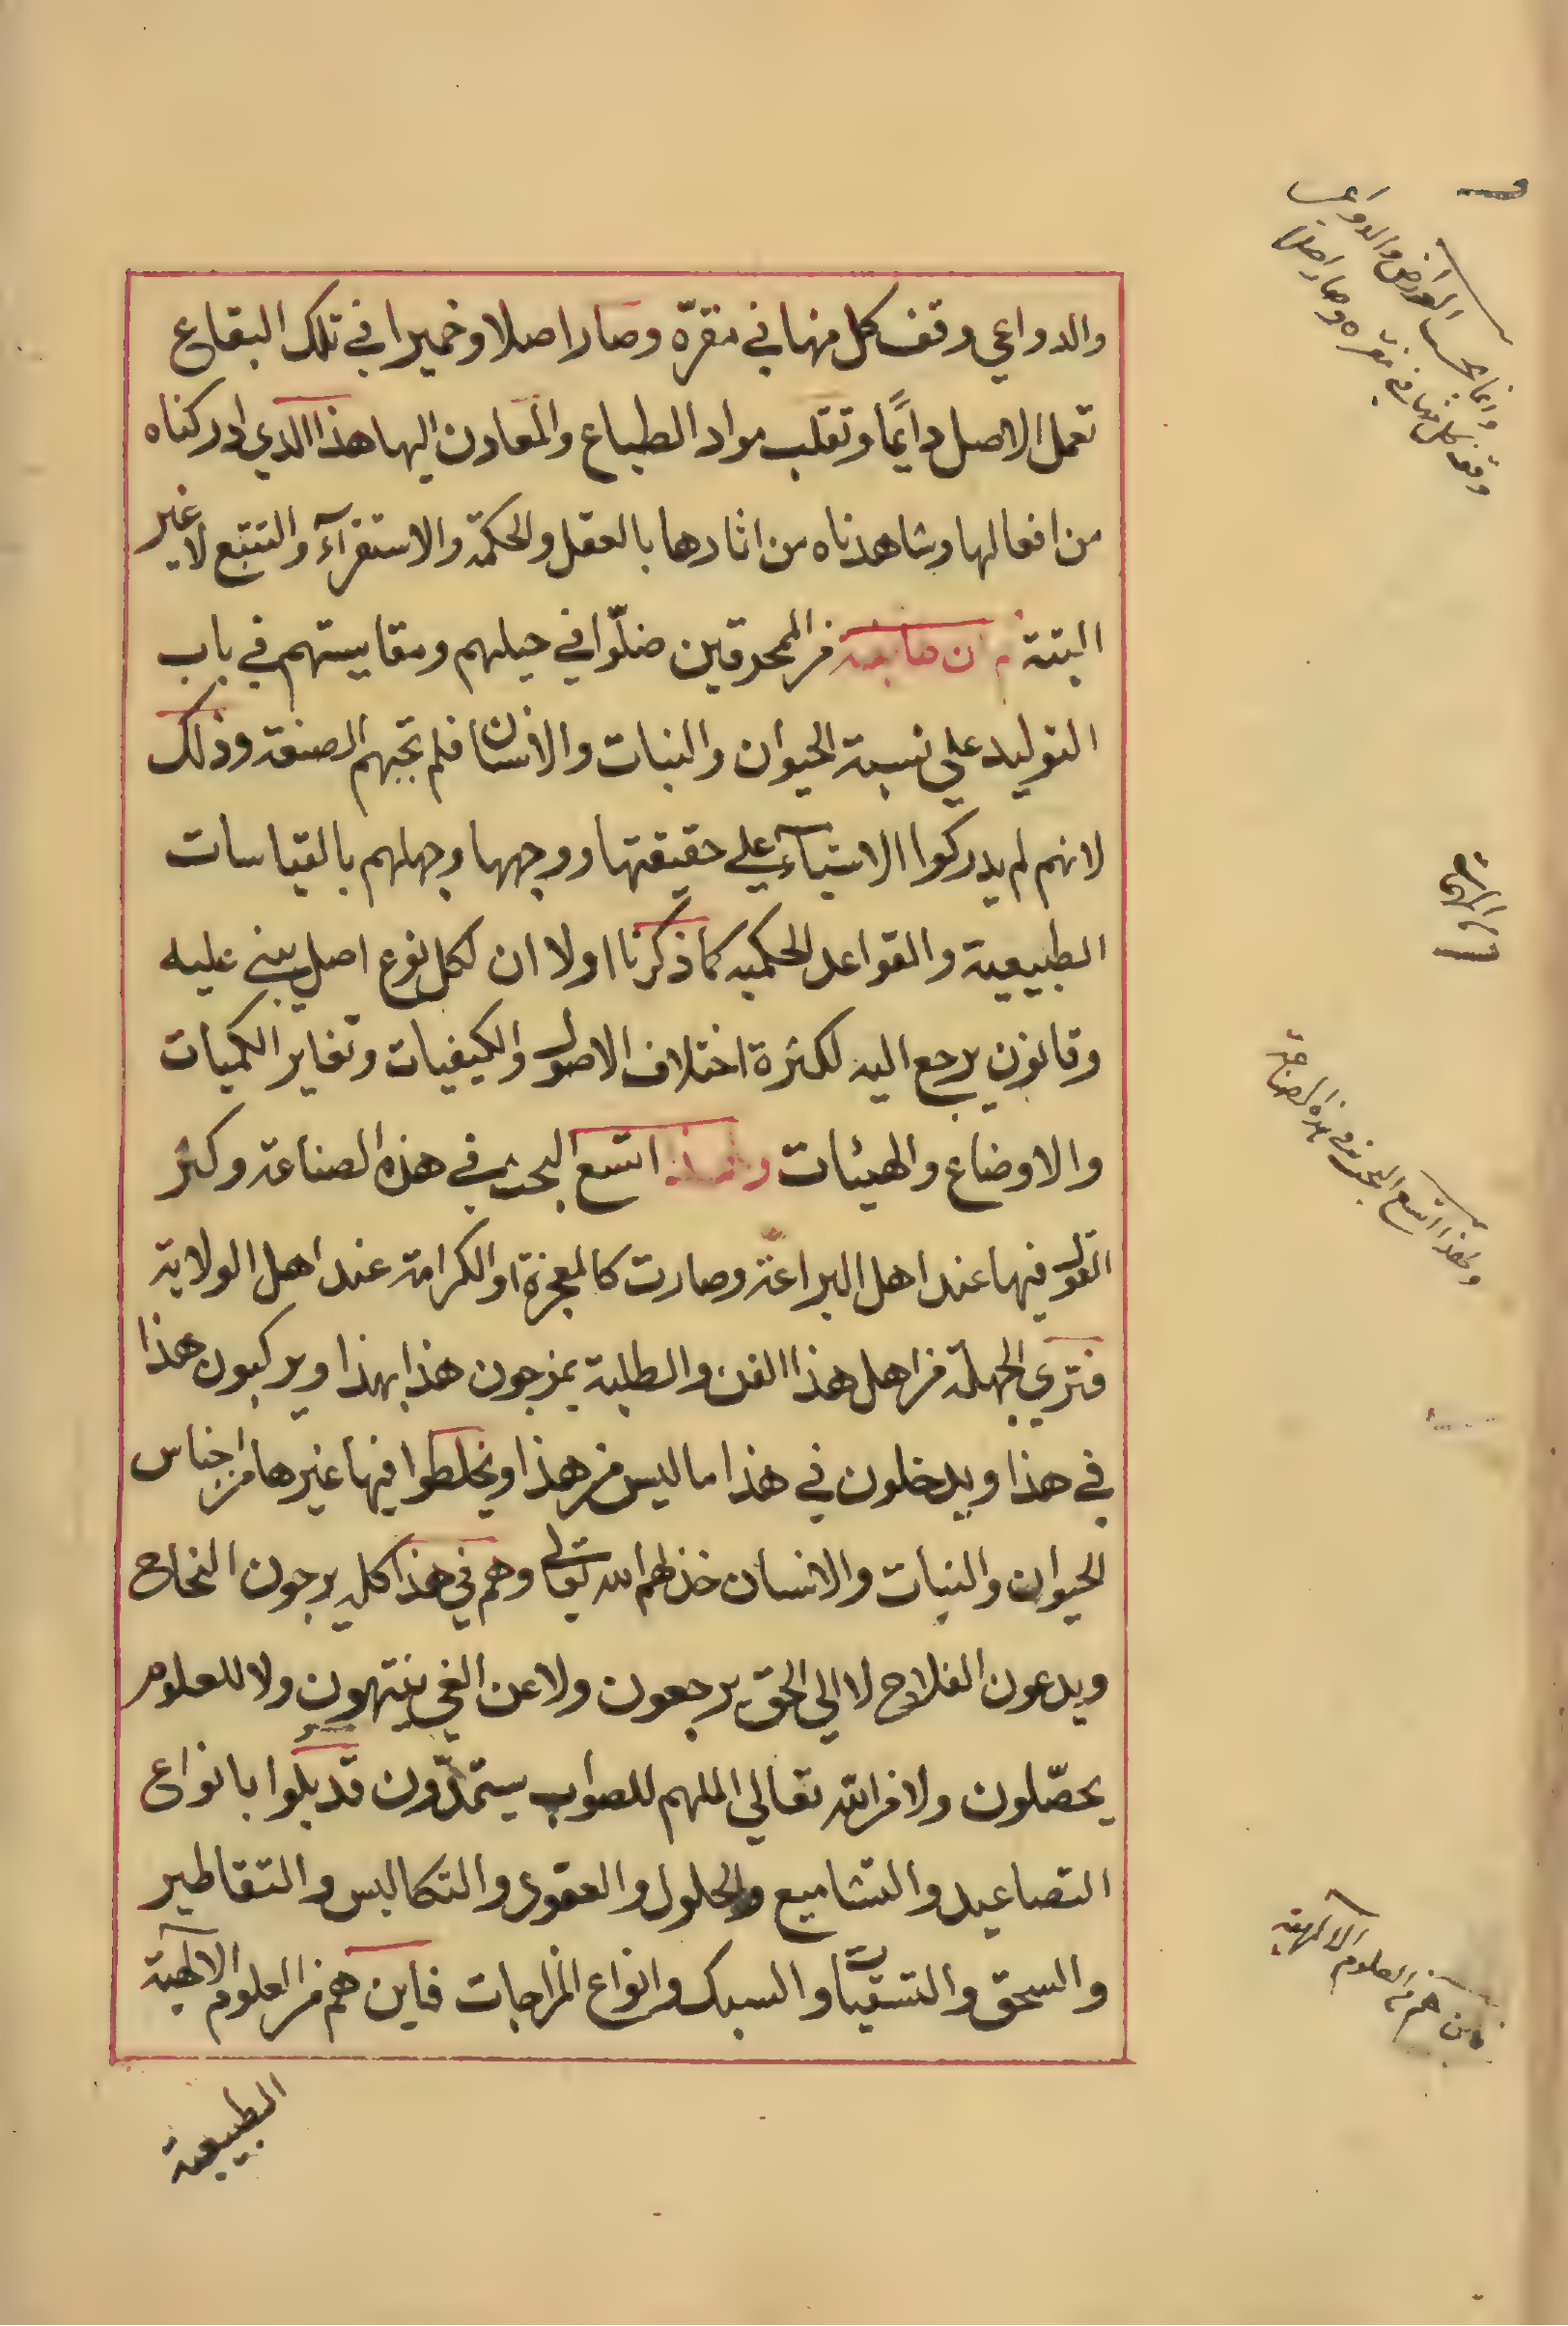 والدواعي وقف كل منها في مقرّه وصار اصلا وخميرا في تلك البقاع
تعمل الاصل دايمًا وتقلب مواد الطباع والمعادن اليها هذا الذي ادركناه
من افعالها وشاهدناه من اثارها بالعقل والحكمة والاستقرآء والتتبع لا غير
البتة ثم ان طايفة من المحدقين ضلّوا في حيلهم ومقاييستهم في باب
التوليد علي نسبة الحيوان والنبات والانسان فلم تجبهم الصنعة وذلك
لانهم لم يدركوا الاشيآء علي حقيقتها ووجهها وجهلهم بالقياسات
الطبيعية والقواعد الحكميه كما ذكرنا اولا ان لكل نوع اصل يبني عليه
وقانون يرجع اليه لكثرة اختلاف الاصول والكيفيات وتغاير الكميات
والاوضاع والهيئات ولهذا اتسع البحث في هذه الصناعة وكثر
القول فيها عند اهل البراعة وصارت كالمعجزة او الكرامة عند اهل الولاية
فتري الجهلة من اهل هذا الفن والطلبة يمزجون هذا بهذا ويركبون هذا
في هذا ويدخلون في هذا ما ليس من هذا ويخلطوا فيها غيرها من اجناس
الحيوان والنبات والانسان خذلهم الله تعالي وهم في هذا كله يرجون النجاح
ويدعون الفلاح لا الي الحق يرجعون ولا عن الغي ينتهون ولا للعلوم
يحصّلون ولا من الله تعالي الملهم للصواب يستمدّون قد بلوا بانواع
التصاعيد والتشاميع والحلول والعقود والتكاليس والتقاطير
والسحق والتسقيات والسبك وانواع المزاجات فاين هم من العلوم الالهية
الطبيعية
وانما بحسب العوارض والدواعي
وقف كل منها في مقره وصار اصلا
ولهذا اتسع البحث في هذه الصناعة
فاين هم من العلوم الالهية